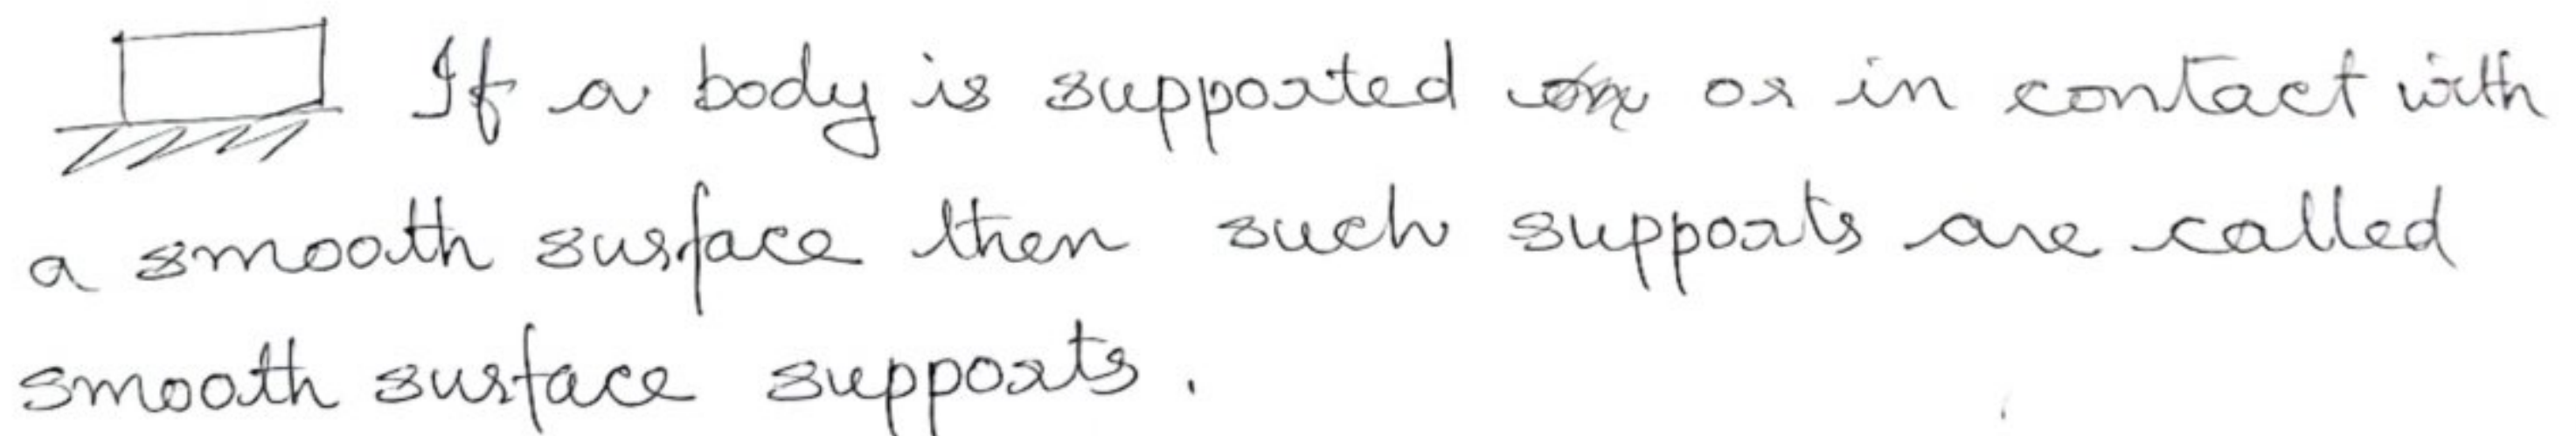 If a body is supported on or in contact with
a smooth surface then such supports are called
smooth surface supports.